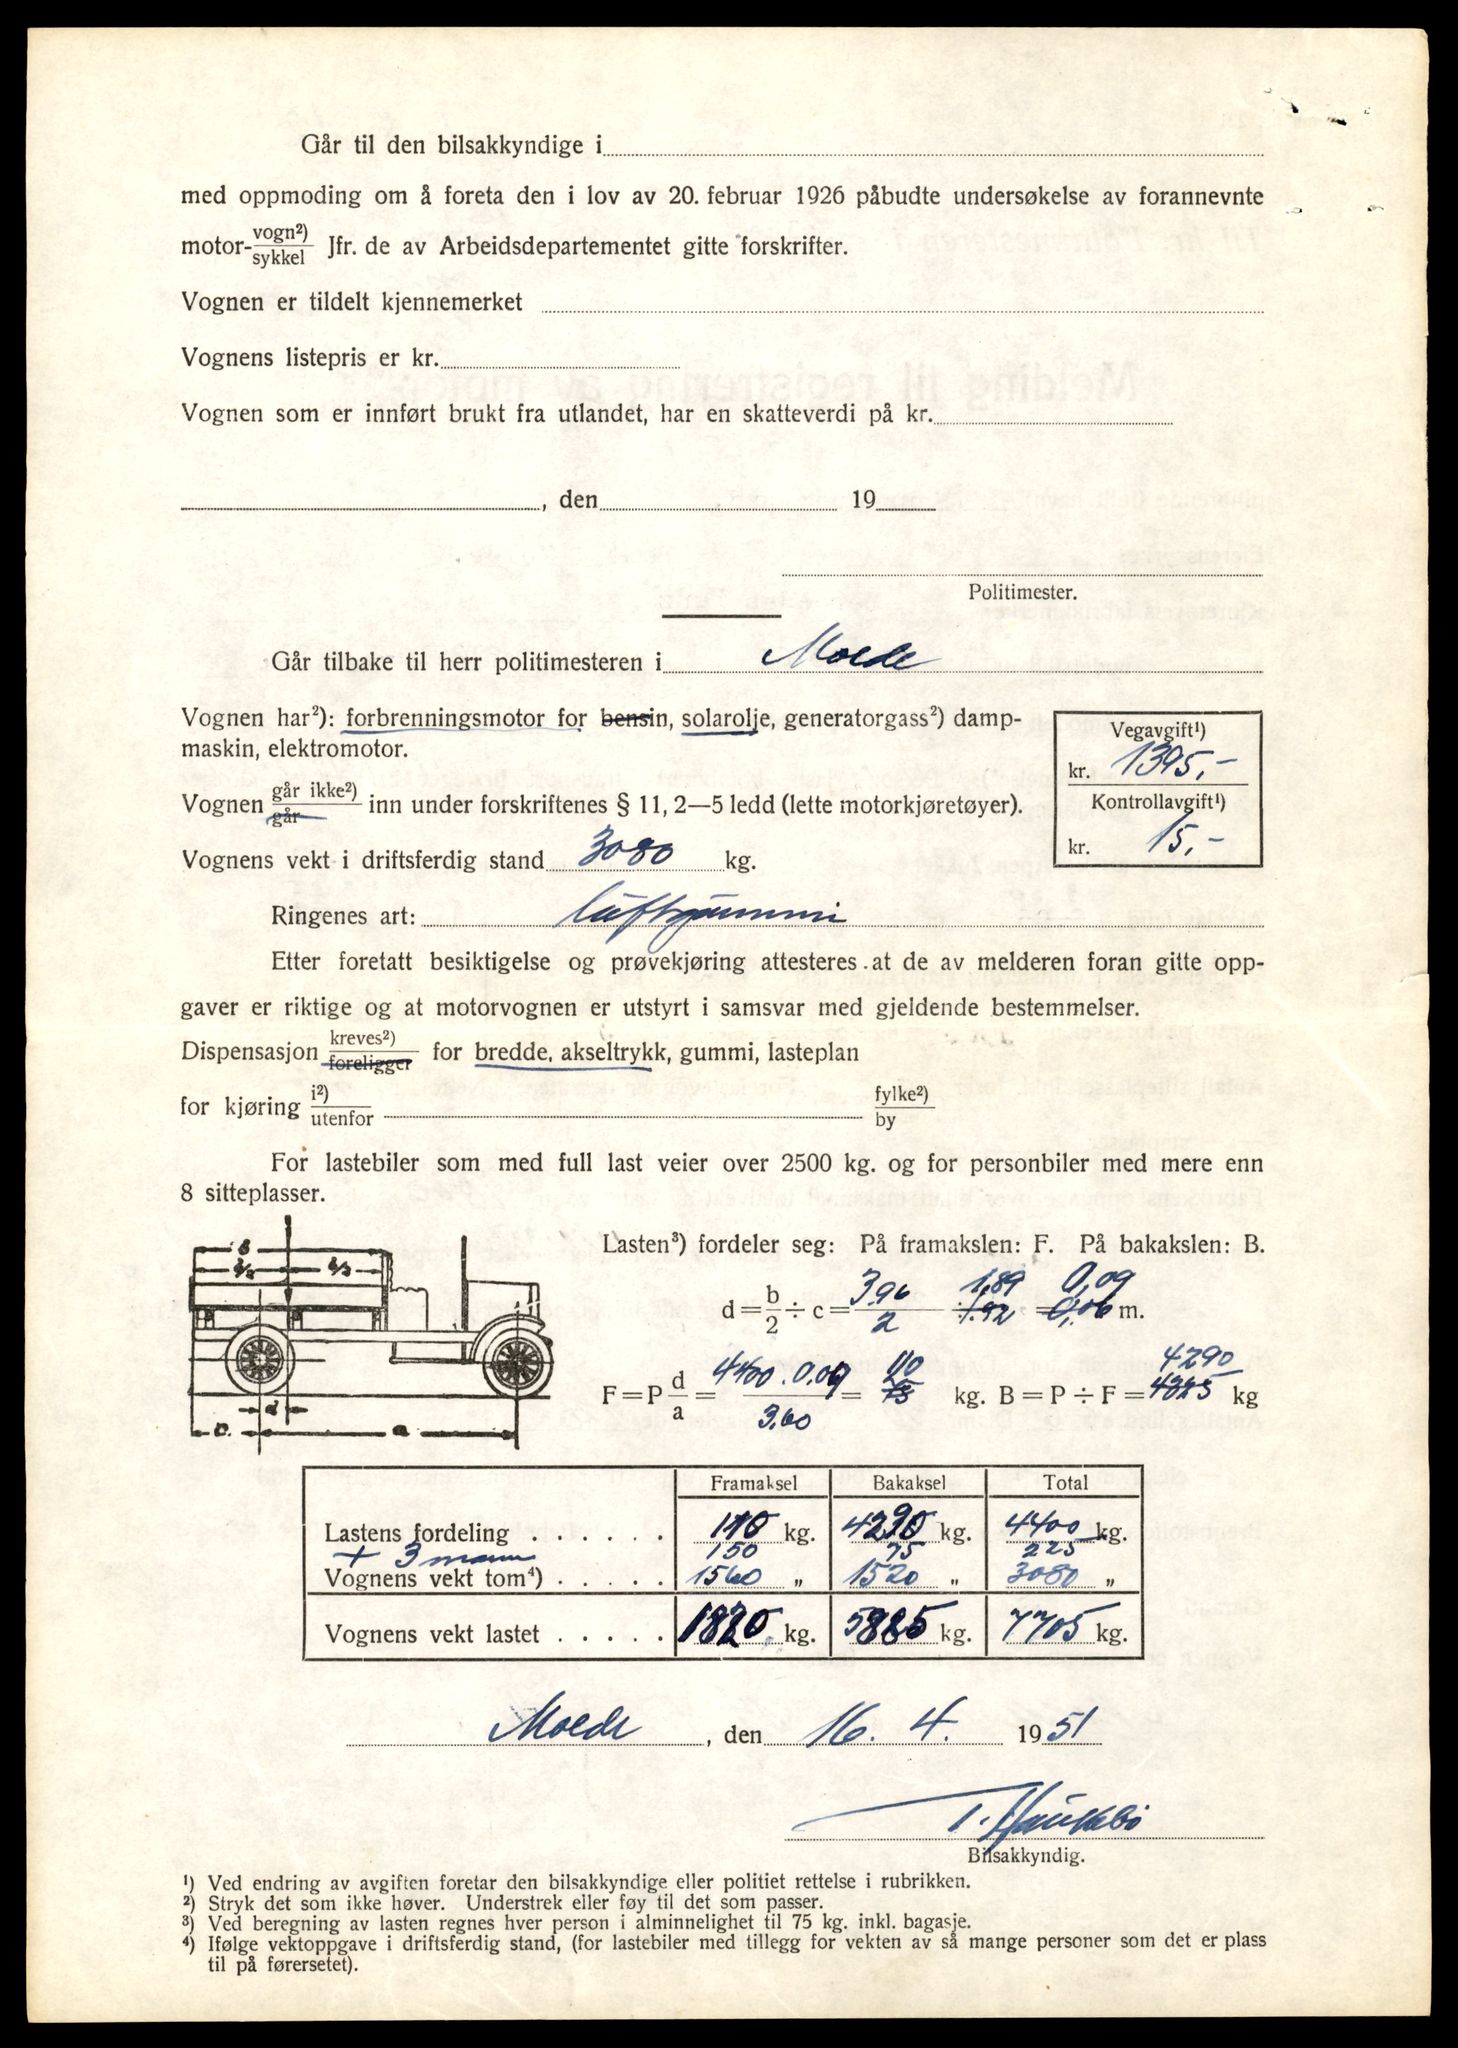 Går til den bilsakkyndige i
med oppmoding om å foreta den i lov av 20. februar 1926 påbudte undersøkelse av forannevnte
motor- vogn²) / sykkel Jfr. de av Arbeidsdepartementet gitte forskrifter.
Vognen er tildelt kjennemerket
Vognens listepris er kr.
Vognen som er innført brukt fra utlandet, har en skatteverdi på kr.
, den 19
Politimester.
Går tilbake til herr politimesteren i Molde
Vognen har²): forbrenningsmotor for bensin, solarolje, generatorgass²) damp-
maskin, elektromotor.
Vegavgift¹)
kr. 1395,-
Kontrollavgift¹)
kr. 15,-
Vognen går ikke²) / går inn under forskriftenes § 11, 2—5 ledd (lette motorkjøretøyer).
Vognens vekt i driftsferdig stand 3080 kg.
Ringenes art: luftgummi
Etter foretatt besiktigelse og prøvekjøring attesteres at de av melderen foran gitte opp-
gaver er riktige og at motorvognen er utstyrt i samsvar med gjeldende bestemmelser.
Dispensasjon kreves²) / foreligger for bredde, akseltrykk, gummi, lasteplan
for kjøring i²) / utenfor fylke²) / by
For lastebiler som med full last veier over 2500 kg. og for personbiler med mere enn
8 sitteplasser.
b
b/2 b/2
d
c. a
Lasten³) fordeler seg: På framakslen: F. På bakakslen: B.
1,89 0,09
d = b/2 ÷ c = 3,96/2 ÷ 1.92 = 0,06 m.
110 4290
F = P d/a = 4400 . 0,09 / 3,60 = 75 kg. B = P ÷ F = 4325 kg
Framaksel Bakaksel Total
Lastens fordeling . . . . . . 110 kg. 4290 kg. 4400 kg.
+ 3 mann 150 75 225
Vognens vekt tom⁴) . . . . . 1560 „ 1520 „ 3080 „
Vognens vekt lastet . . . . . 1820 kg. 5885 kg. 7705 kg.
Molde, den 16. 4. 1951
T. Haukebø
Bilsakkyndig.
¹) Ved endring av avgiften foretar den bilsakkyndige eller politiet rettelse i rubrikken.
²) Stryk det som ikke høver. Understrek eller føy til det som passer.
³) Ved beregning av lasten regnes hver person i alminnelighet til 75 kg. inkl. bagasje.
⁴) Ifølge vektoppgave i driftsferdig stand, (for lastebiler med tillegg for vekten av så mange personer som det er plass
til på førersetet).